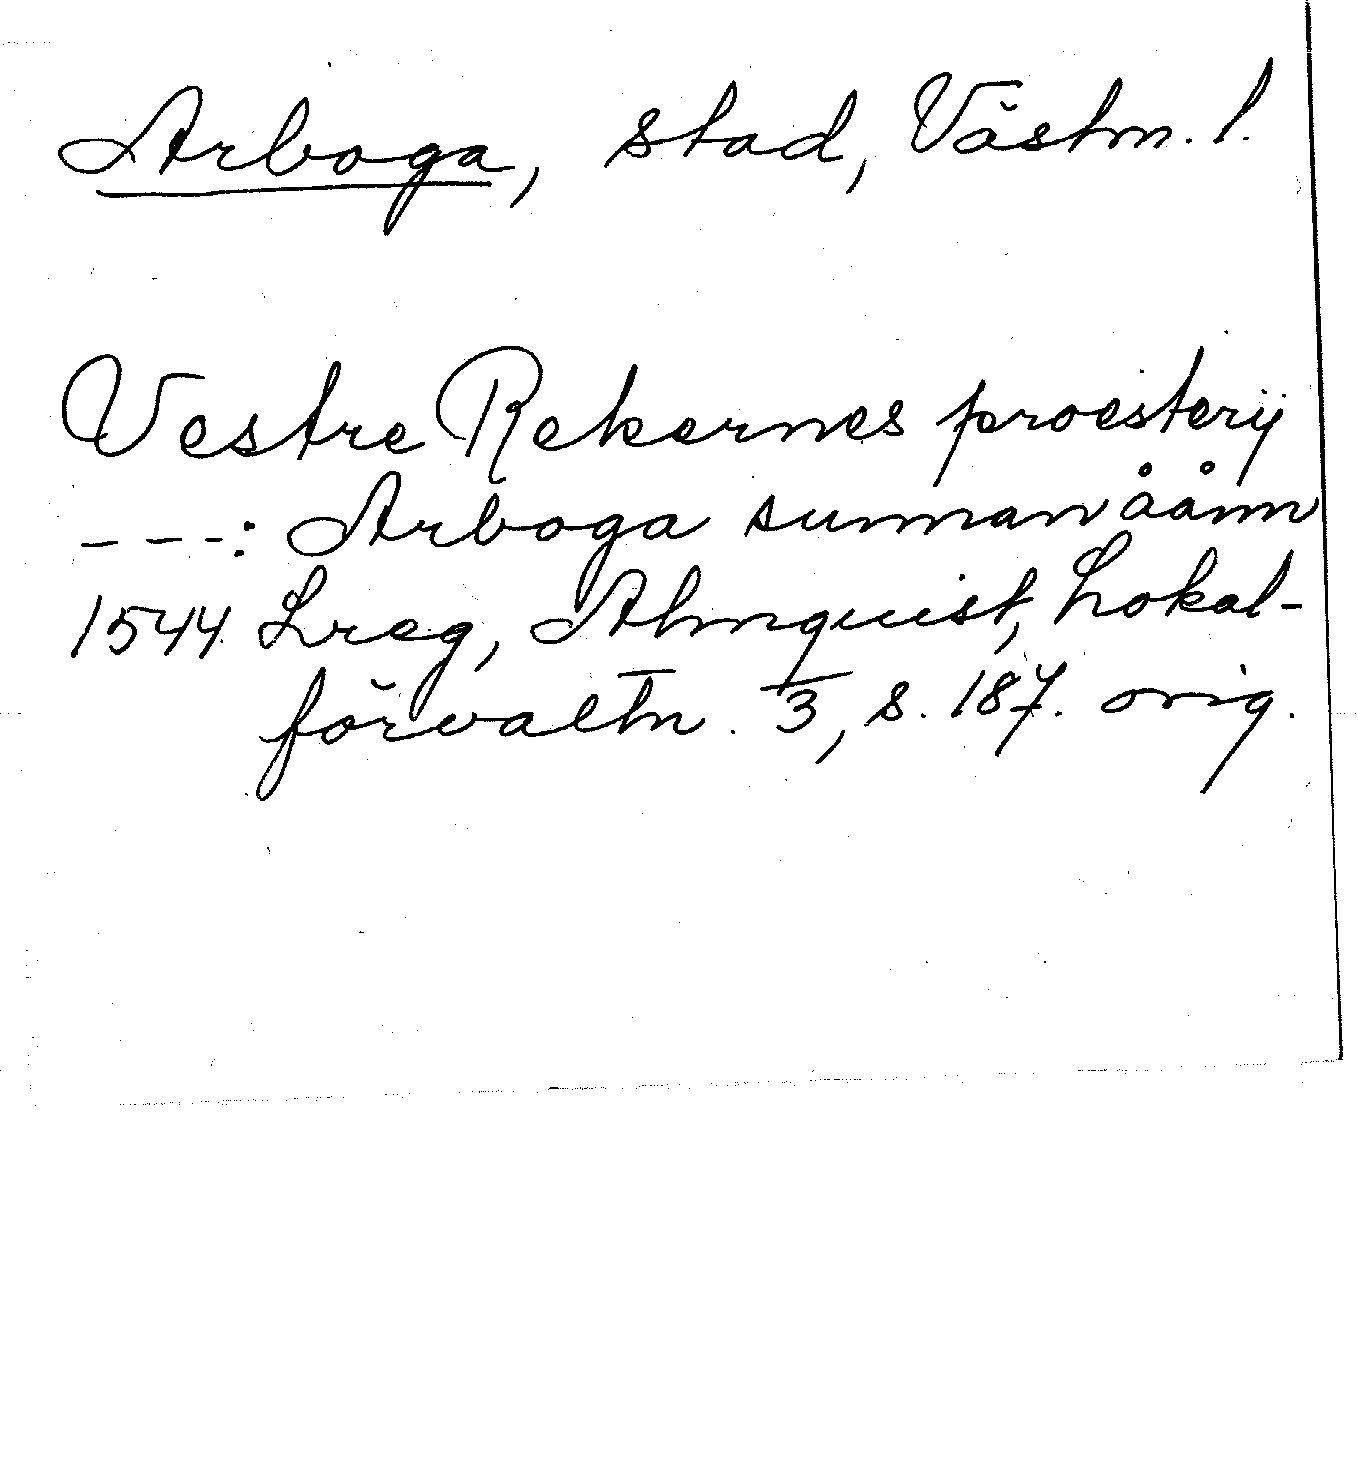 Arboga, stad, Västm. l.
Vestre Rekernes proesterij
---: Arboga sunnanåånn
1544 Lreg, Almquist, Lokal-
förvaltn. 3, s. 187. orig.